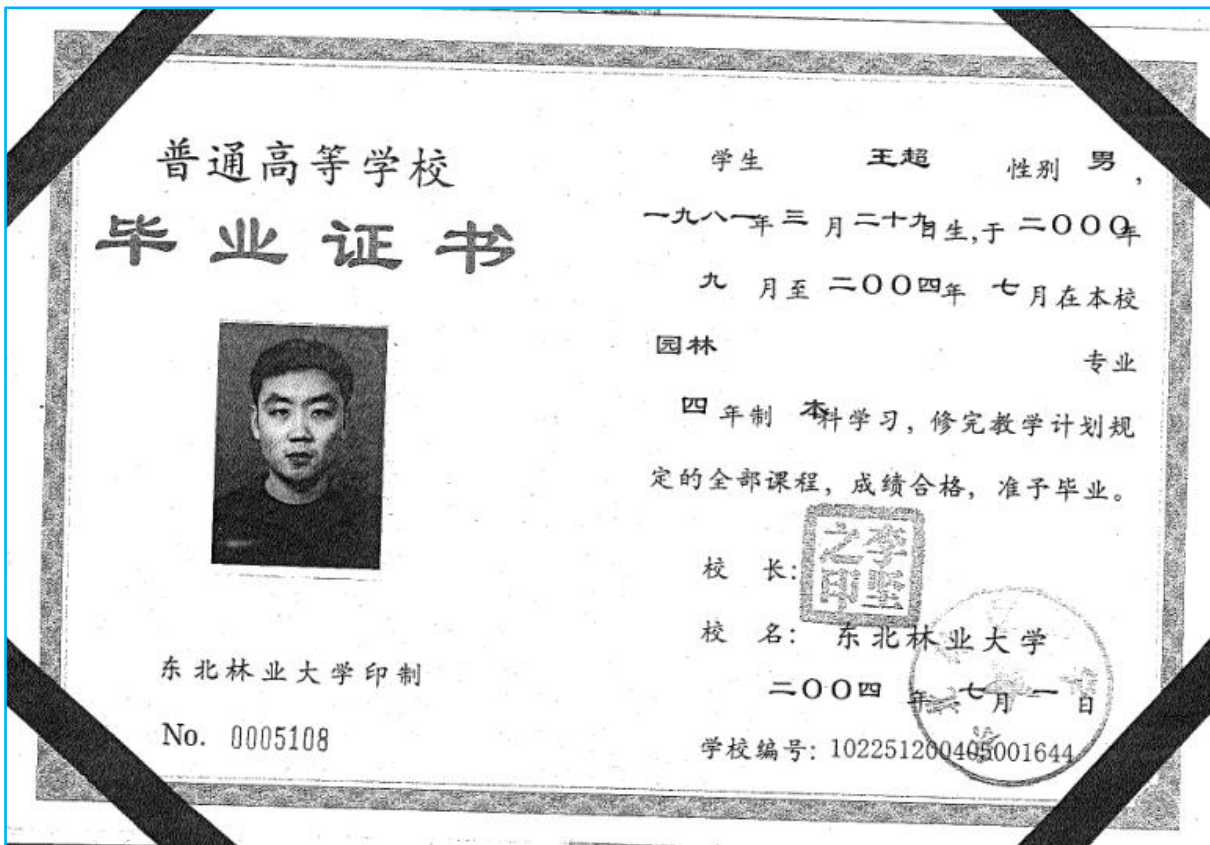 普通高等学校
毕业证书
东北林业大学印制
No. 0005108
学生 王超 性别 男,
一九八一年三月二十九日生,于二〇〇〇年
九月至二〇〇四年 七月在本校
园林 专业
四年制 本科学习,修完教学计划规
定的全部课程,成绩合格,准予毕业。
校长:
李坚之印
校名:东北林业大学
二〇〇四年七月一日
学校编号:102251200405001644